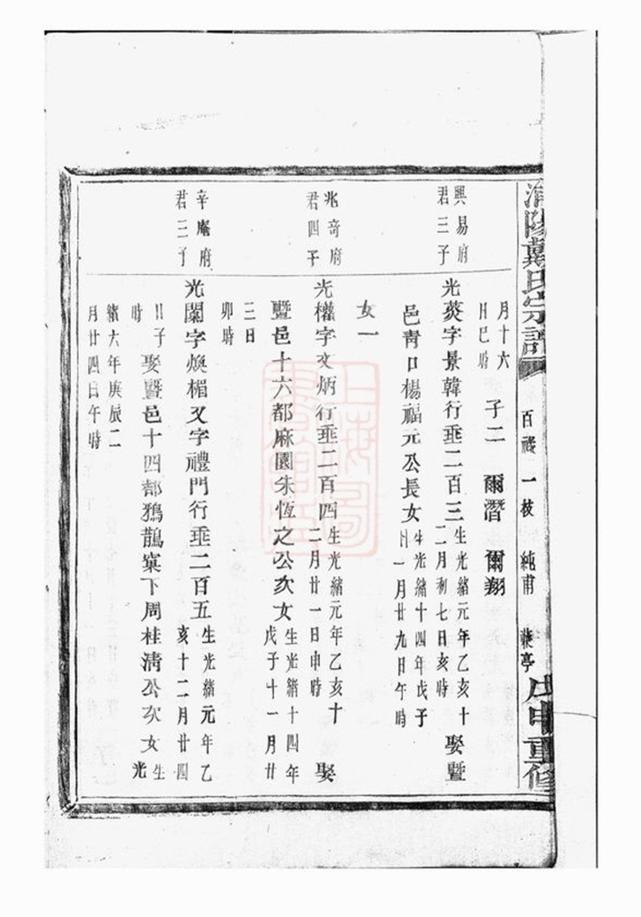 浦陽戴氏宗譜
百祿一枝 純甫 戊申重修
月十六日巳時 子二 爾潛 爾翔
興易府君三子
光葵字景韓行垂二百三 生光緒元年乙亥十二月初七日亥時 娶暨
邑青口楊福元公長女 生光緒十四年戊子 月廿九日午時
女一
兆奇府君四子
光權字文炳行垂二百四 生光緒元年乙亥十二月廿一日申時 娶
暨邑十六都麻園朱恆之公次女 生光緒十四年戊子十一月廿
三日卯時
辛庵府君三子
光闌字煥楣又字禮門行垂二百五 生光緒元年乙亥十二月廿四
日子時 娶暨邑十四都鵶鵲窠下周桂清公次女 生光
緒六年庚辰二月廿四日午時